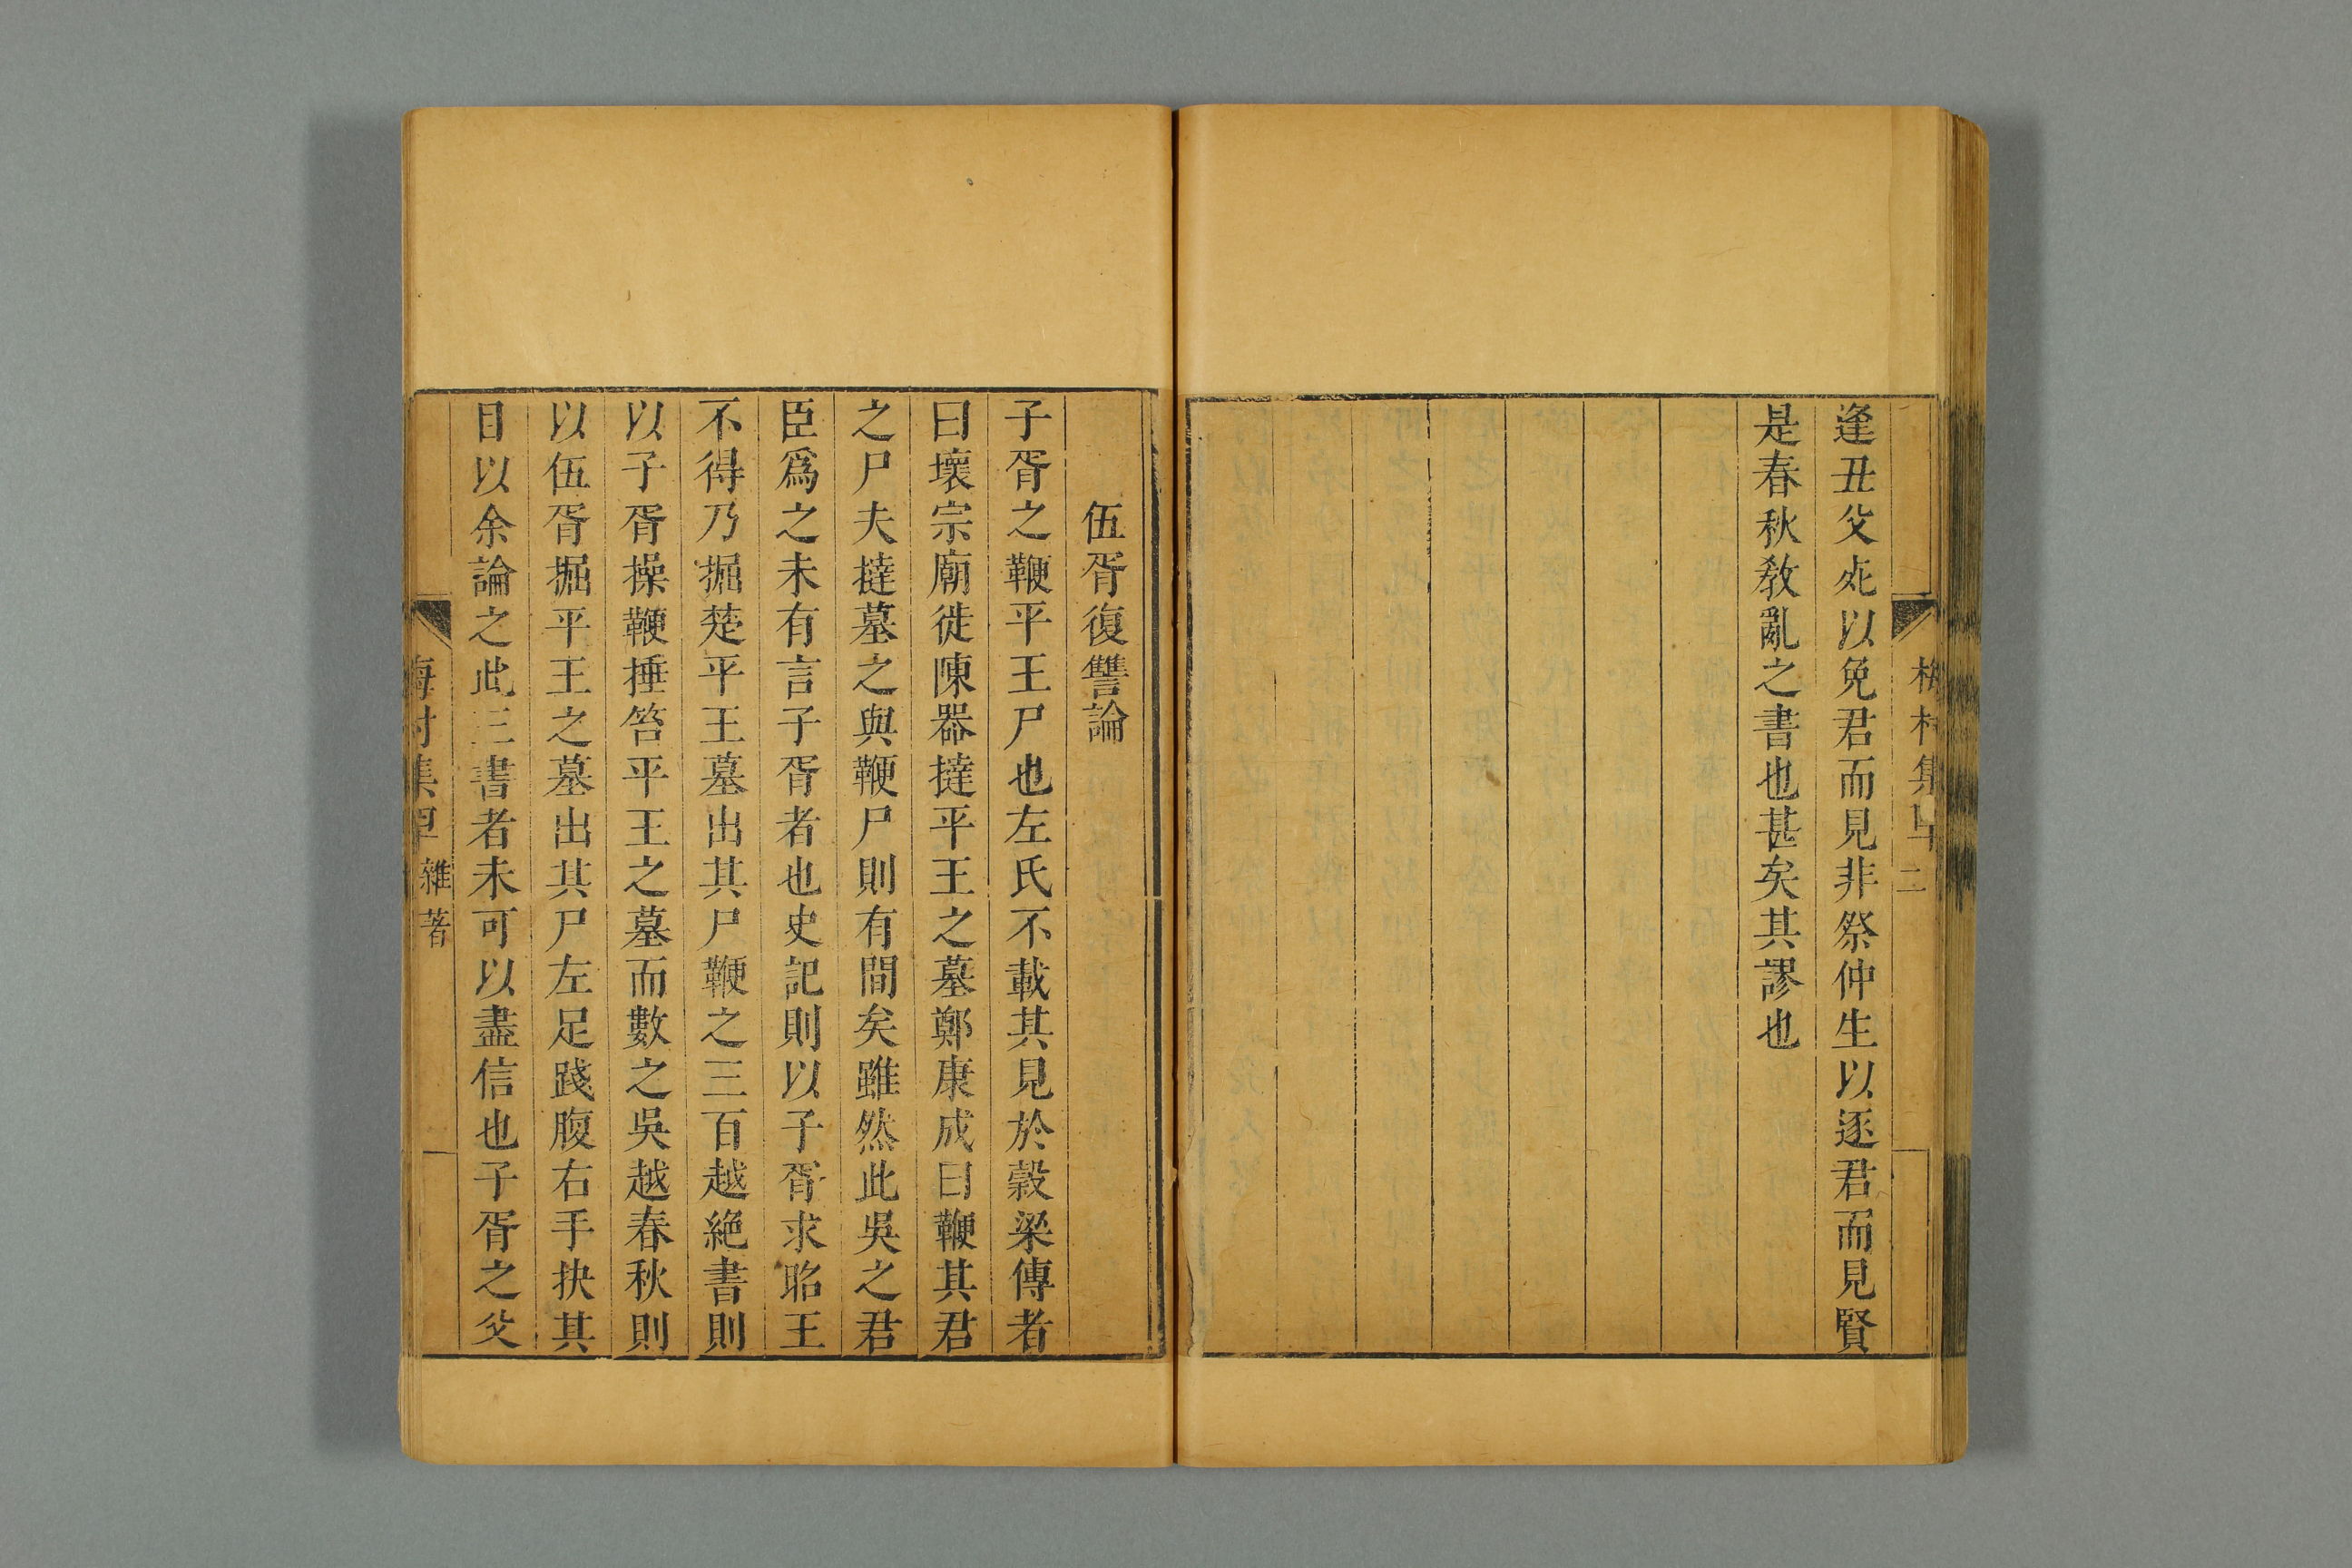 逢丑父死以免君而見非祭仲生以逐君而見賢
是春秋教亂之書也甚矣其謬也
伍胥復讐論
子胥之鞭平王尸也左氏不載其見於穀梁傳者
曰壞宗廟徙陳器撻平王之墓鄭康成曰鞭其君
之尸夫撻墓之與鞭尸則有間矣雖然此吳之君
臣爲之未有言子胥者也史記則以子胥求昭王
不得乃掘楚平王墓出其尸鞭之三百越絶書則
以子胥操鞭捶笞平王之墓而數之吳越春秋則
以伍胥掘平王之墓出其尸左足踐腹右手抉其
目以余論之此三書者未可以盡信也子胥之父
村集 雜著